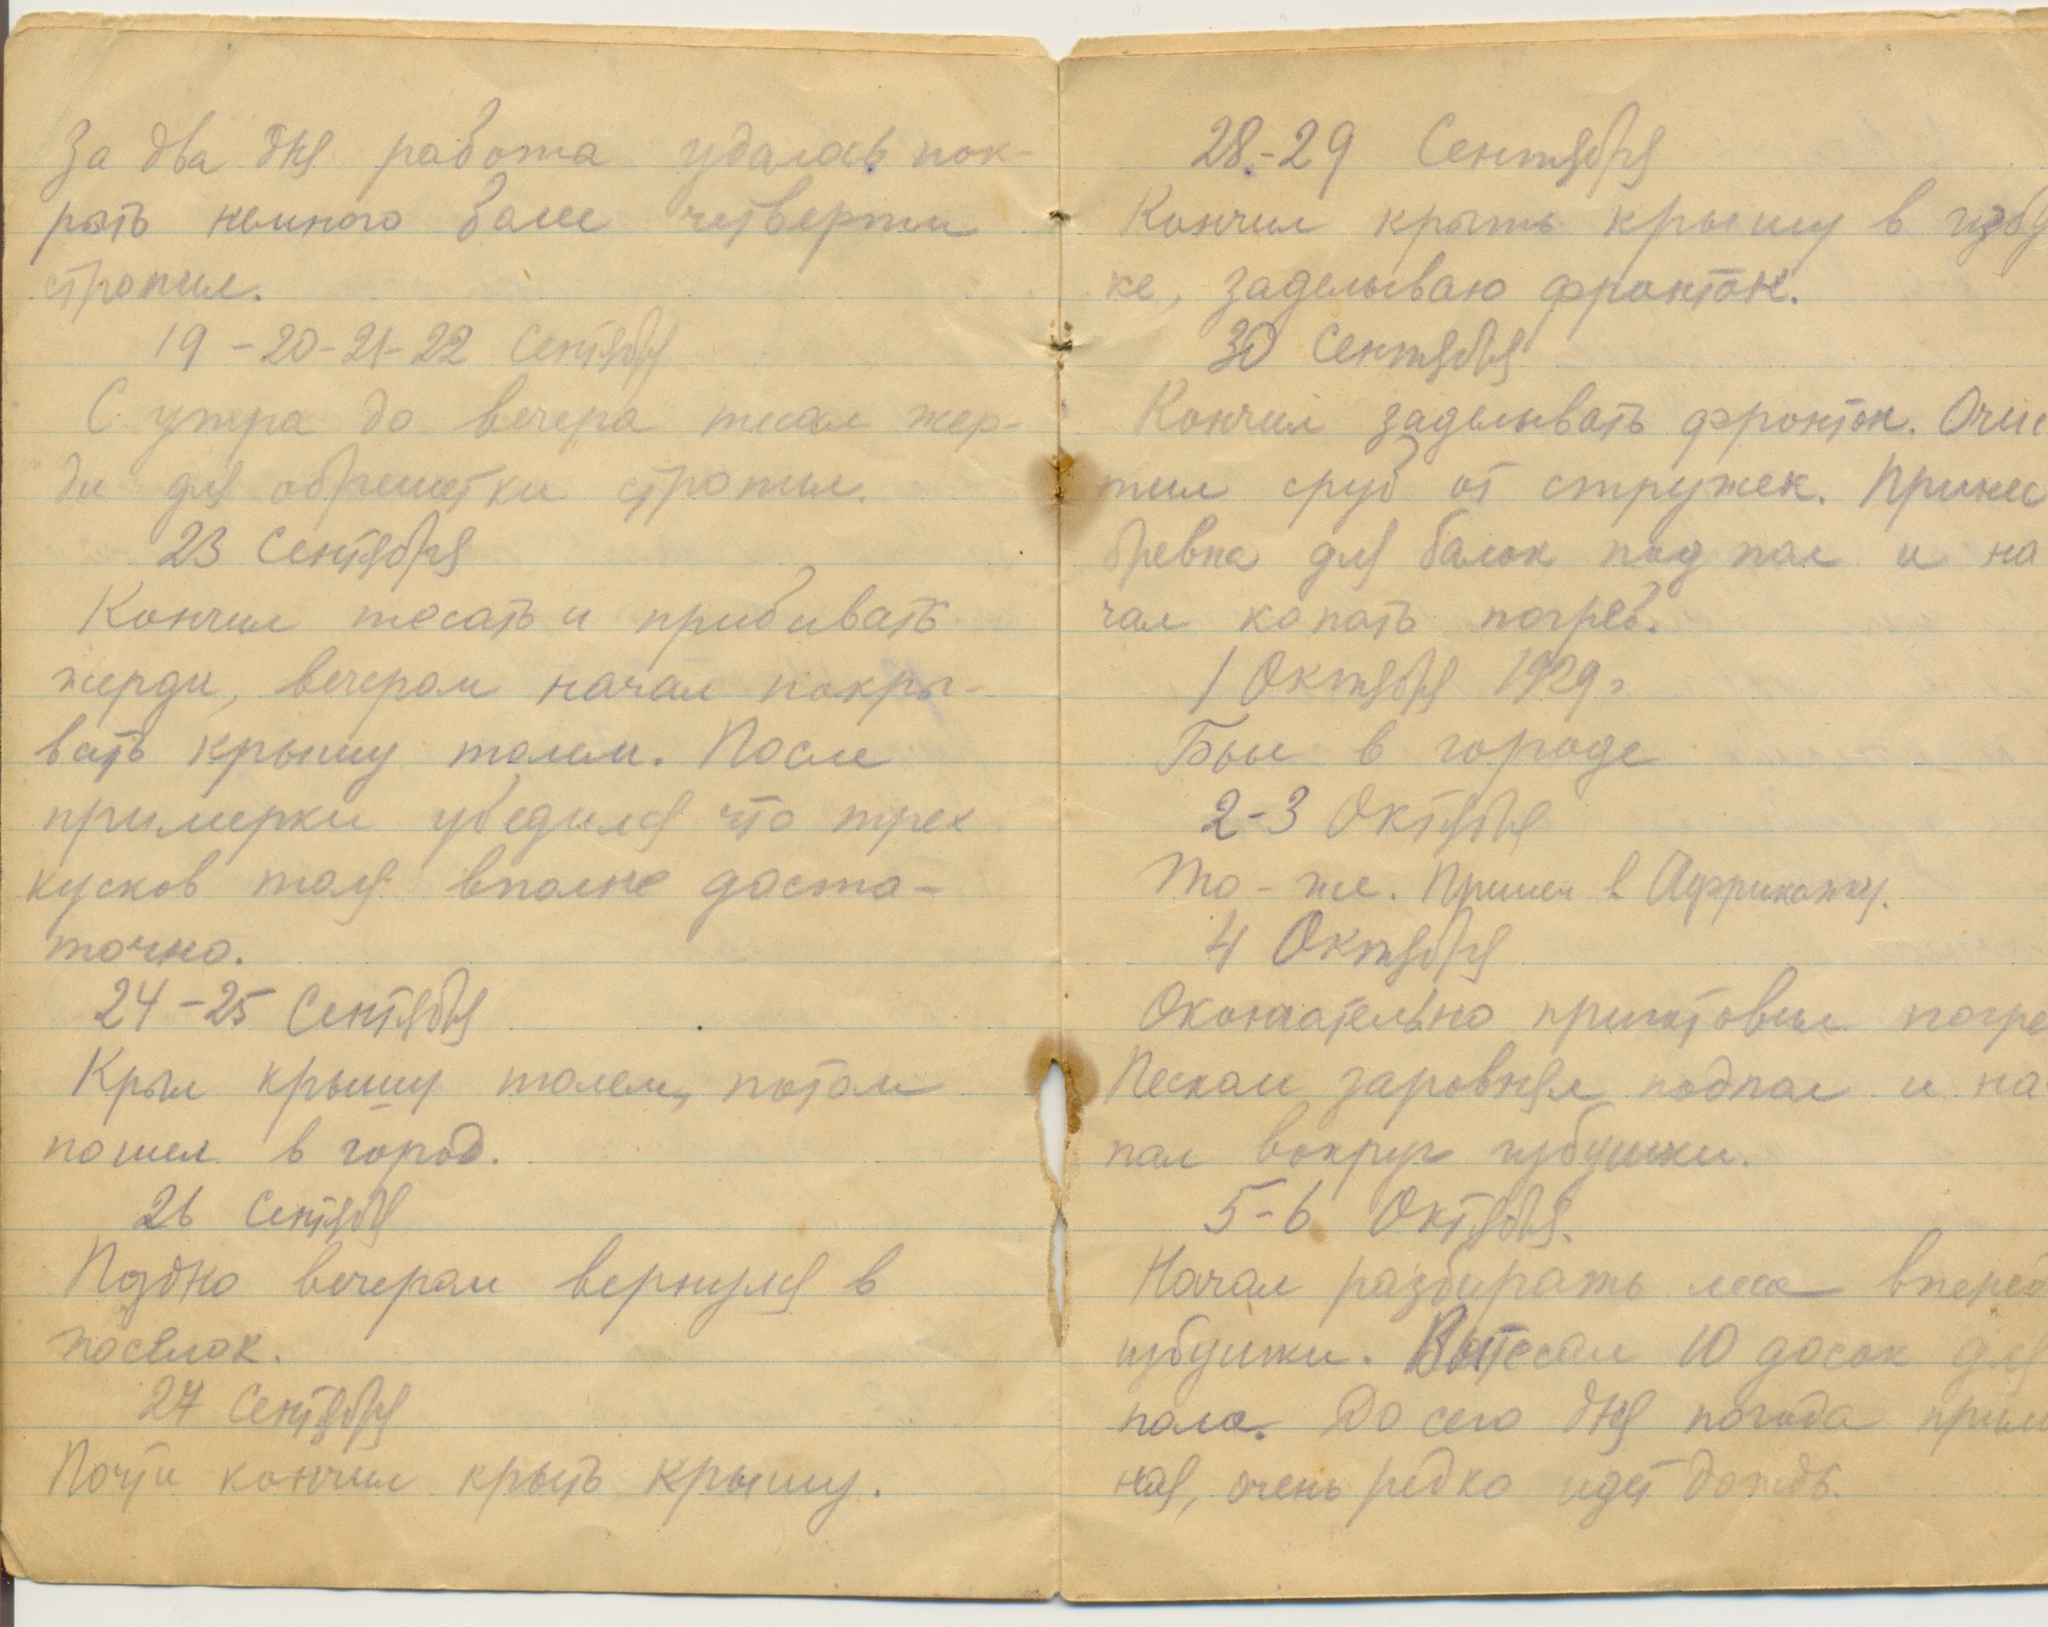 За два дня работа удалась пок-
рыть немного более четверти
стропил.
19-20-21-22 Сентября
С утра до вечера тесал жер-
ди для обрешетки стропил.
23 Сентября
Кончил тесать и прибивать
жерди, вечером начал покры-
вать крышу толем. После
примерки убедился что трех
кусков толя вполне доста-
точно.
24-25 Сентября
Крыл крышу толем, потом
пошел в город.
26 Сентября
Поздно вечером вернулся в
поселок.
27 Сентября
Почти кончил крыть крышу.
28-29 Сентября
Кончил крыть крышу в избу
ке, заделываю фронтон.
30 Сентября
Кончил заделывать фронтон. Очис
тил сруб от стружек. Принес
бревна для балок под пол и на
чал копать погреб.
1 Октября 1929г
Был в городе
2-3 Октября
То-же. Пришел в
4 Октября
Окончательно приготовил погре
Песком заровнял подпол и на
пал вокруг избушки.
5-6 Октября.
Начал разбирать леса вперед
избушки. Вытесал 10 досок для
пола. До сего дня погода
ная, очень редко идет дождь.